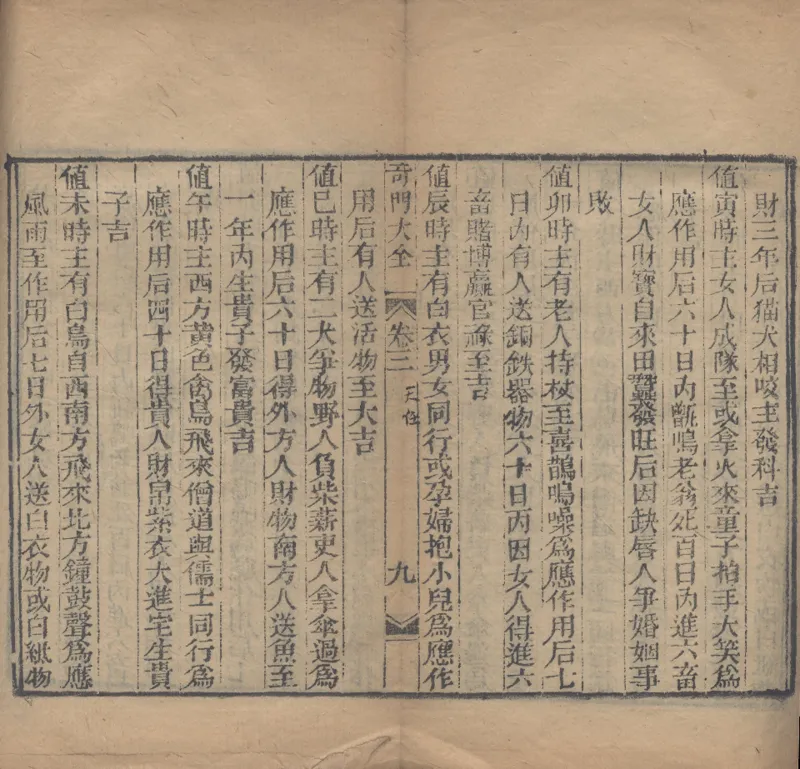 財三年后猫犬相咬主發科吉
値寅時主女人成隊至或拿火來童子拍手大笑爲
應作用后六十日內甑鳴老翁死百日內進六畜
女人財寶自來田蠶發旺后因缺唇人爭婚姻事
敗
値卯時主有老人持杖至喜鵲鳴噪爲應作用后七
日內有人送銅鉄器物六十日丙因女人得進六
畜賭博贏官祿至吉
値辰時主有白衣男女同行或孕婦抱小兒爲應作
奇門大全 卷三 天任 九
用后有人送活物至大吉
値巳時主有二犬爭物野人負柴薪吏人拿傘過爲
應作用后六十日得外方人財物南方人送魚至
一年內生貴子發富貴吉
値午時主西方黃色禽鳥飛來僧道與儒士同行爲
應作用后四十日得貴人財帛紫衣大進宅生貴
子吉
値未時主有白鳥自西南方飛來北方鐘鼓聲爲應
風雨至作用后七日外女人送白衣物或白紙物